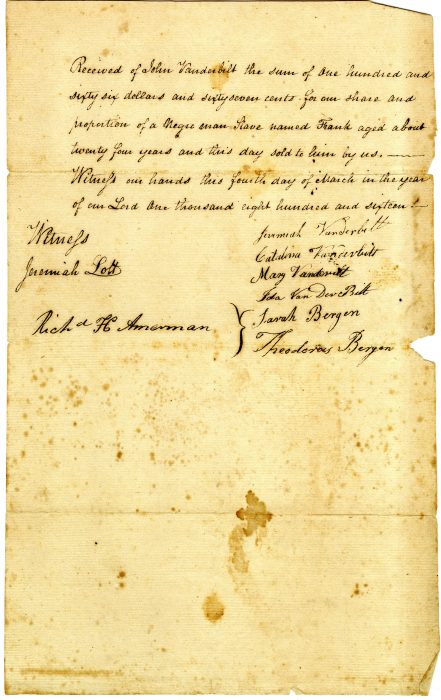 Received of John Vanderbilt the sum of One hundred and
sixty six dollars and sixty seven cents for our share and
proportion of a Negro man Slave named Frank aged about
twenty four years and this day sold to him by us. ——
Witness our hands this fourth day of March in the year
of our Lord One thousand eight hundred and sixteen —
Jeremiah Vanderbilt
Witness
Catalina Vanderbilt
Jeremiah Lott
Mary Vanderbilt
Ida Van Der Bilt
Sarah Bergen
Rich d H Amerman
Theodorus Bergen